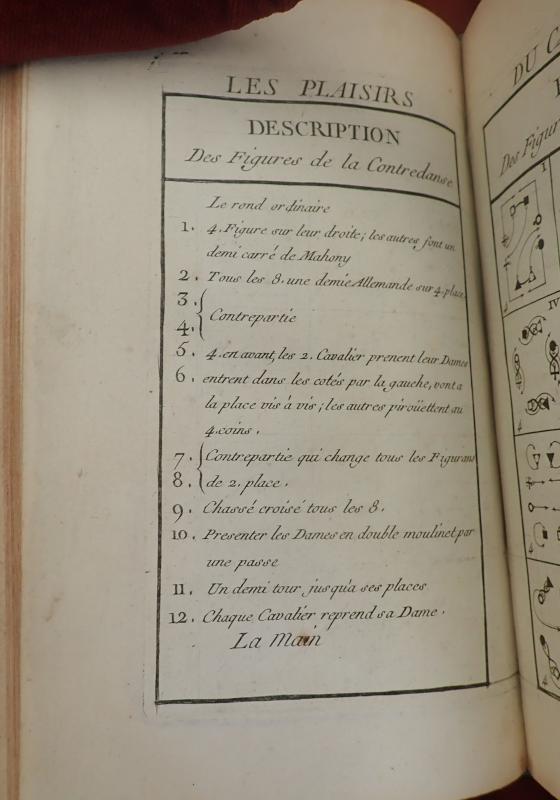 LES PLAISIRS
DESCRIPTION
Des Figures de la Contredanse
Le rond ordinaire
1. 4. Figure sur leur droite; les autres font un
demi carré de Mahony
2. Tous les 8. une demie Allemande sur 4. place
3. Contrepartie
4.
5. 4. en avant, les 2. Cavalier prenent leur Dames
6. entrent dans les cotés par la gauche, vont a
la place vis à vis; les autres piroüettent au
4. coins.
7. Contrepartie qui change tous les Figurans
8. de 2. place.
9. Chassé croisé tous les 8.
10. Presenter les Dames en double moulinet par
une passe
11. Un demi tour jusqu'a ses places
12. Chaque Cavalier reprend sa Dame.
La Main
DU
Des Figur
I
IV